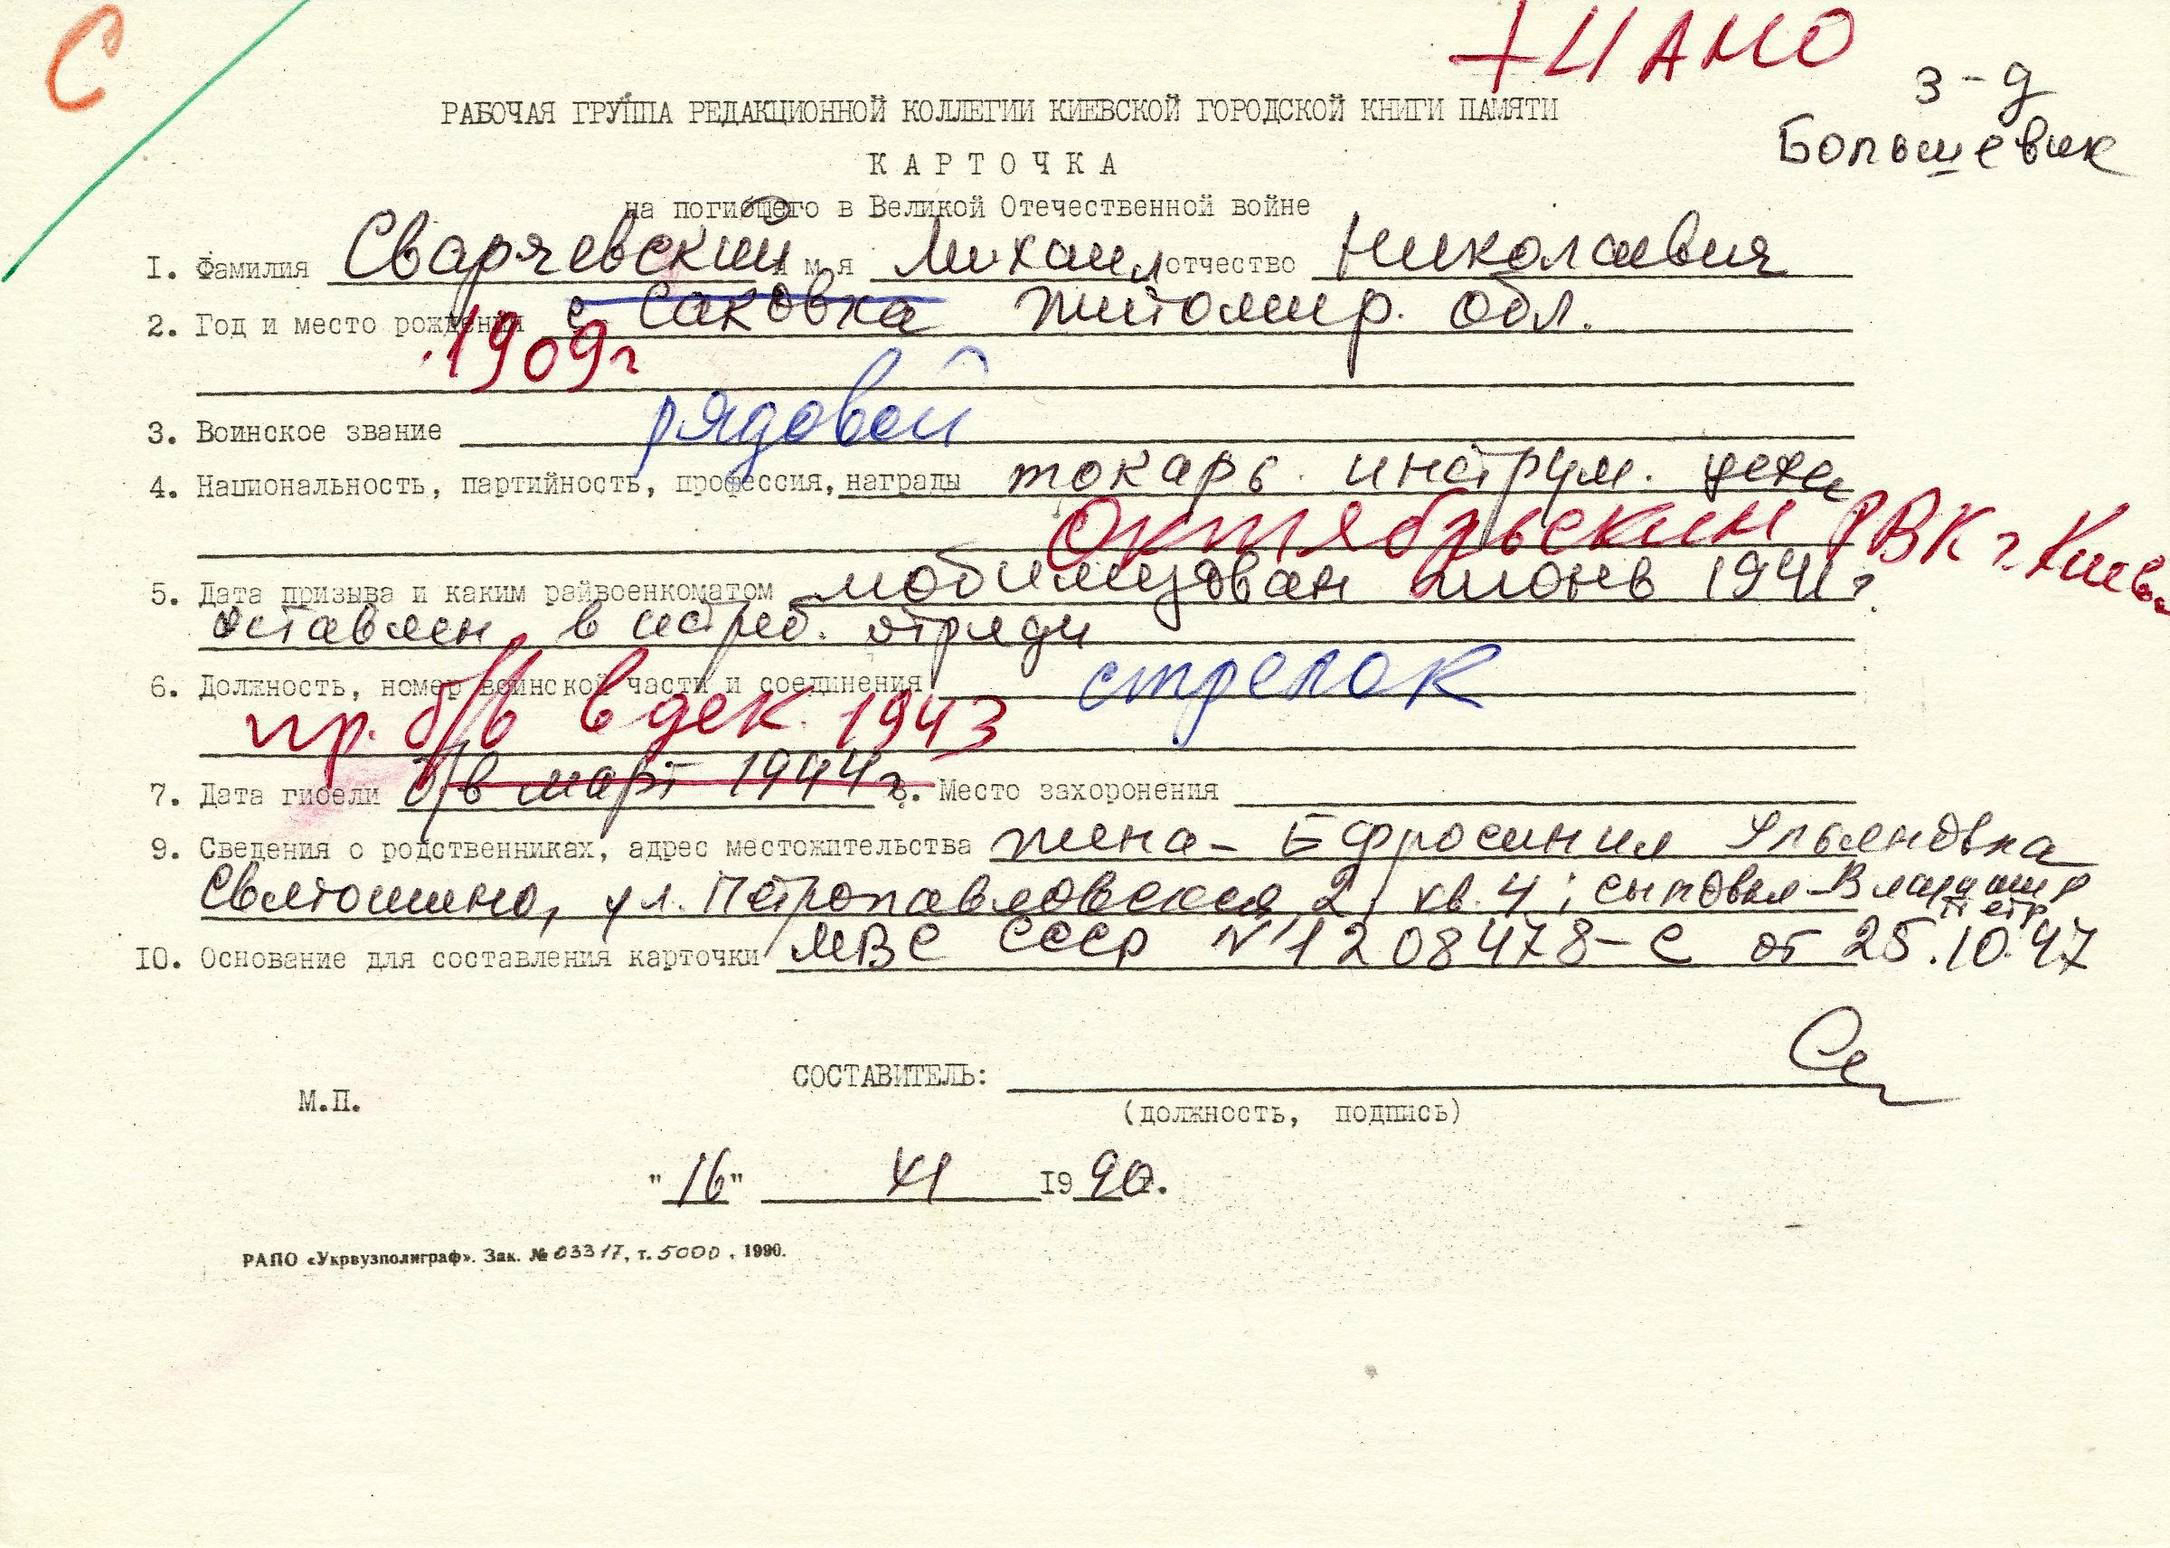 С
+ ЦАМО
з-д
Большевик
РАБОЧАЯ ГРУППА РЕДАКЦИОННОЙ КОЛЛЕГИИ КИЕВСКОЙ ГОРОДСКОЙ КНИГИ ПАМЯТИ
КАРТОЧКА
на погибшего в Великой Отечественной войне
1. Фамилия Сварчевский имя Михаил отчество Николаевич
2. Год и место рождения с Саковка Житомир. обл.
1909г
3. Воинское звание рядовой
4. Национальность, партийность, профессия, награды токарь инструм. цеха
Октябрьским РВК г. Киева
5. Дата призыва и каким райвоенкоматом мобилизован июнь 1941г
оставлен в истреб. отряди
6. Должность, номер воинской части и соединения стрелок
пр. б/в в дек. 1943
7. Дата гибели б/в март 1944г. 8. Место захоронения
9. Сведения о родственниках, адрес местожительства жена - Ефросиния Ульяновна
Святошино, ул. Петропавловская 2, кв. 4; сыновья - Владимир
Петр
10. Основание для составления карточки МВС СССР №1208478-С от 25.10.47
СОСТАВИТЕЛЬ:
М.П.
(должность, подпись)
"16" XI 1990г.
РАПО «Укрвузполиграф». Зак. № 03317, т. 5000, 1990.